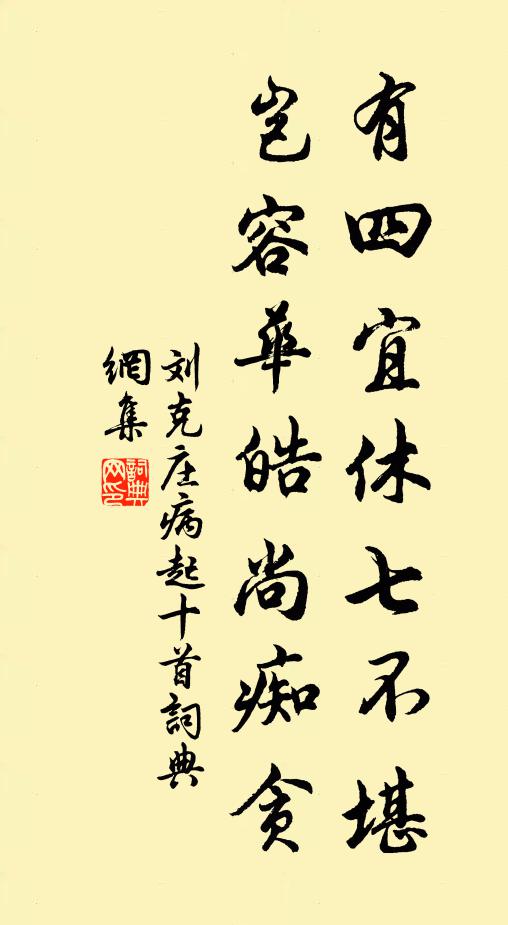 有四宜休七不堪
岂容華皓尚痴贪
刘克庄病起十首詞典
網集
詞典網印